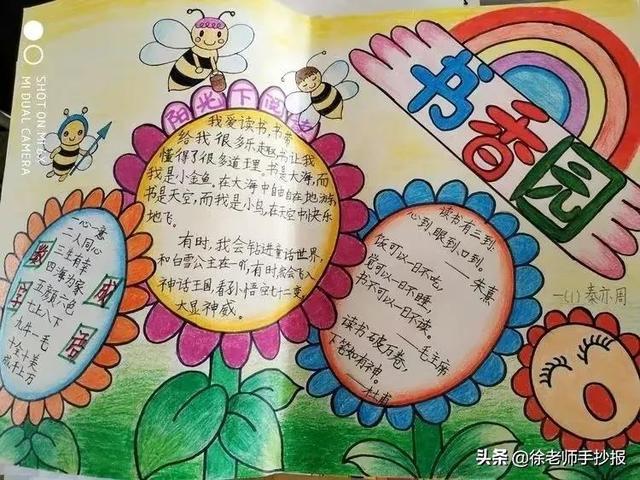 SHOT ON MI
MI DUAL CAMERA
阳光下阅读
书香园
我爱读书,书带
给我很多乐趣书让我
懂得了很多道理。书是大海,而
我是小金鱼,在大海中自由自在地游泳
书是天空,而我是小鸟在天空中快乐
地飞。
有时,我会钻进童话世界,
和白雪公主在一听,有时就会飞入
神话王国,看孙悟空七十二变,
大显神威。
数字成语
一心一意
二人同心
三生有幸
四海为家
五颜六色
七上八下
九牛一毛
十全十美
成千上万
读书有三到,
心到、眼到、口到。
——朱熹
饭可以一日不吃,
觉可以一日不睡,
书不可以一日不读。
——毛主席
读书破万卷,
下笔如有神。
——杜甫
一(1) 秦亦周
头条 @徐老师手抄报